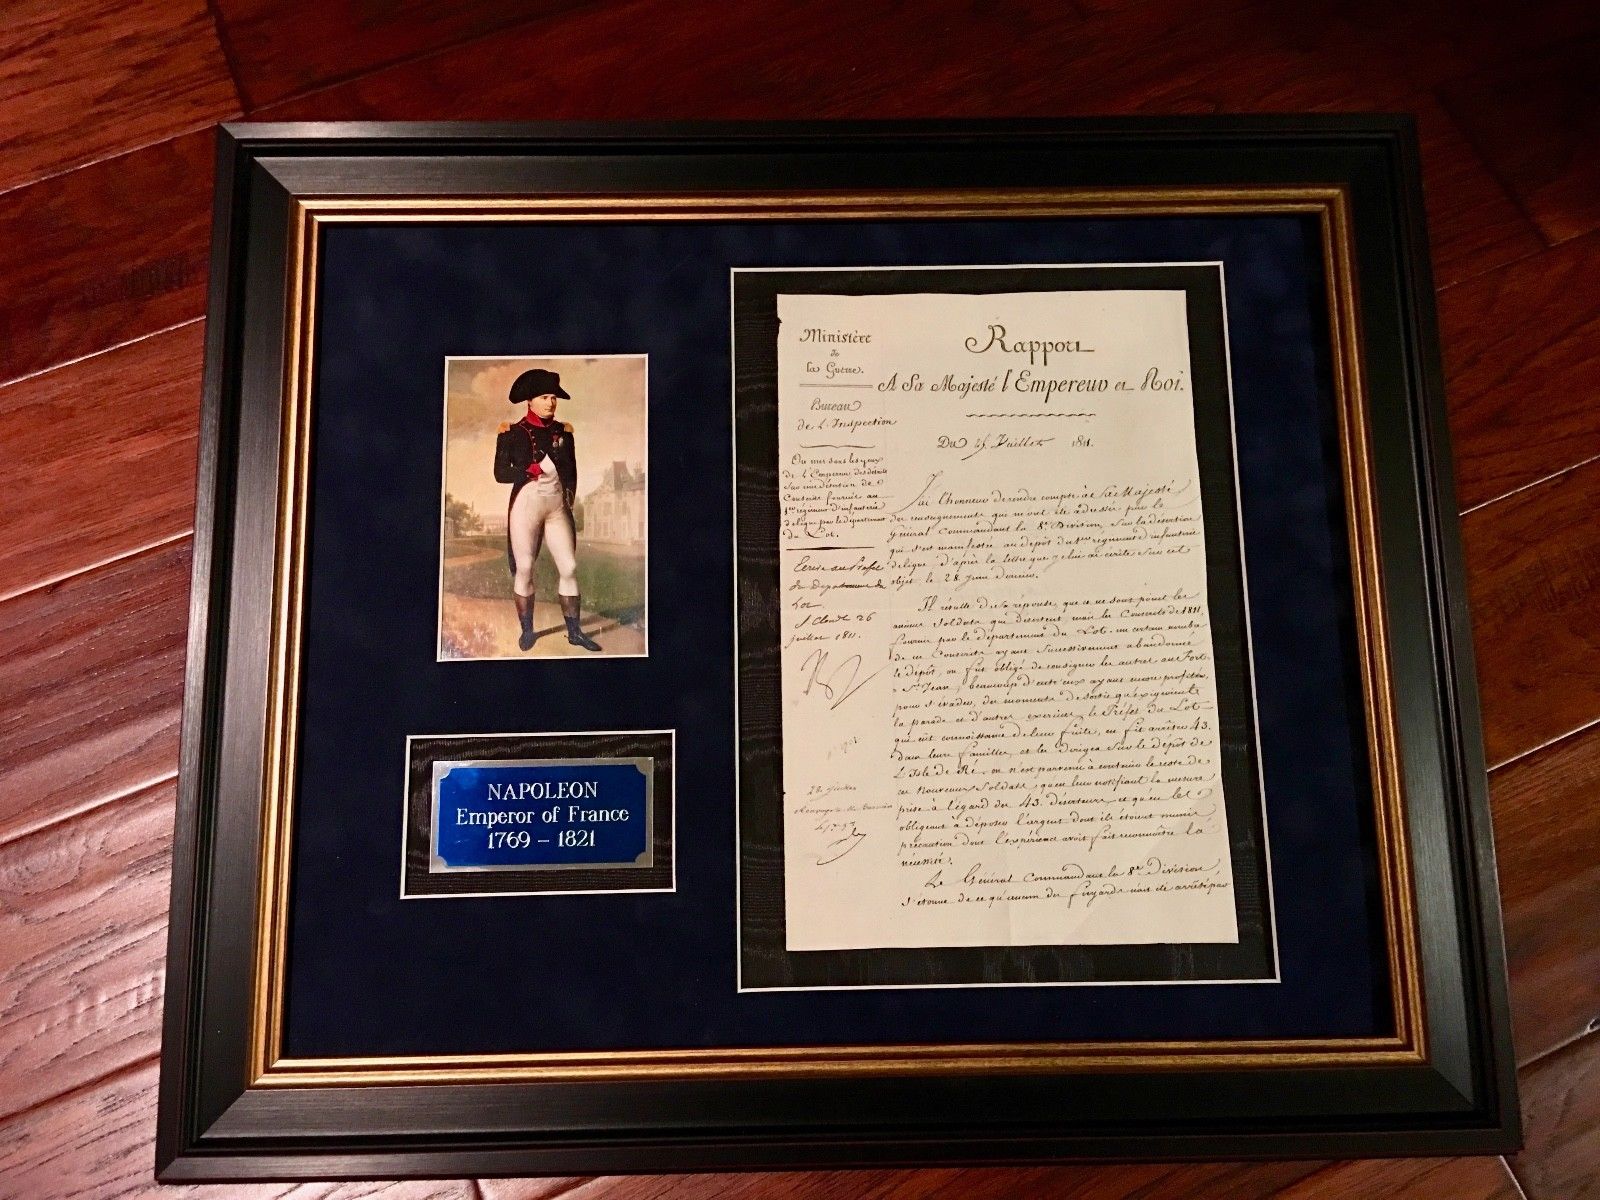 NAPOLEON
Emperor of France
1769 – 1821
Ministère
de
la Guerre.
Bureau
de l'Inspection
On met sous les yeux
de l'Empereur des détails
Sur une désertion de
Conscrits fournis au
régiment d'infanterie
de ligne par le département
du Lot.
Ecrire au Préfet
du département du
Lot
St Cloud 26
juillet 1811.
Rapport
A Sa Majesté l'Empereur et Roi.
Du Juillet 1811.
J'ai l'honneur de rendre compte à Sa Majesté
des renseignements qui m'ont été adressés par le
général Commandant la 8e Division, Sur la désertion
qui s'est manifestée au dépôt du régiment d'infanterie
de ligne, d'après la lettre que je lui ai écrite Sur cet
objet, le 28 Juin dernier.
Il résulte de sa réponse, que ce ne sont point les
anciens Soldats qui désertent, mais les Conscrits de 1811,
fournis par le département du Lot. un certain nombre
de ces Conscrits ayant successivement abandonné
le dépôt, on fut obligé de consigner les autres au Fort
St Jean, beaucoup d'entr'eux ayant encore profité,
pour s'évader, des moments de sortie qu'exigeaient
la parade et d'autres exercices, le Préfet du Lot
qui eut connaissance de leur fuite, en fit arrêter 43.
dans leurs familles, et les dirigea Sur le dépôt de
l'Isle de Ré. on n'est parvenu à contenir le reste de
ces Nouveaux Soldats, qu'en leur notifiant la mesure
prise à l'égard des 43. déserteurs, et qu'en les
obligeant à déposer l'argent dont ils étoient munis,
précaution dont l'expérience avoit fait reconnoître la
nécessité.
Le Général Commandant la 8e Division
s'étonne de ce qu'aucun des fuyards n'ait été arrêté par